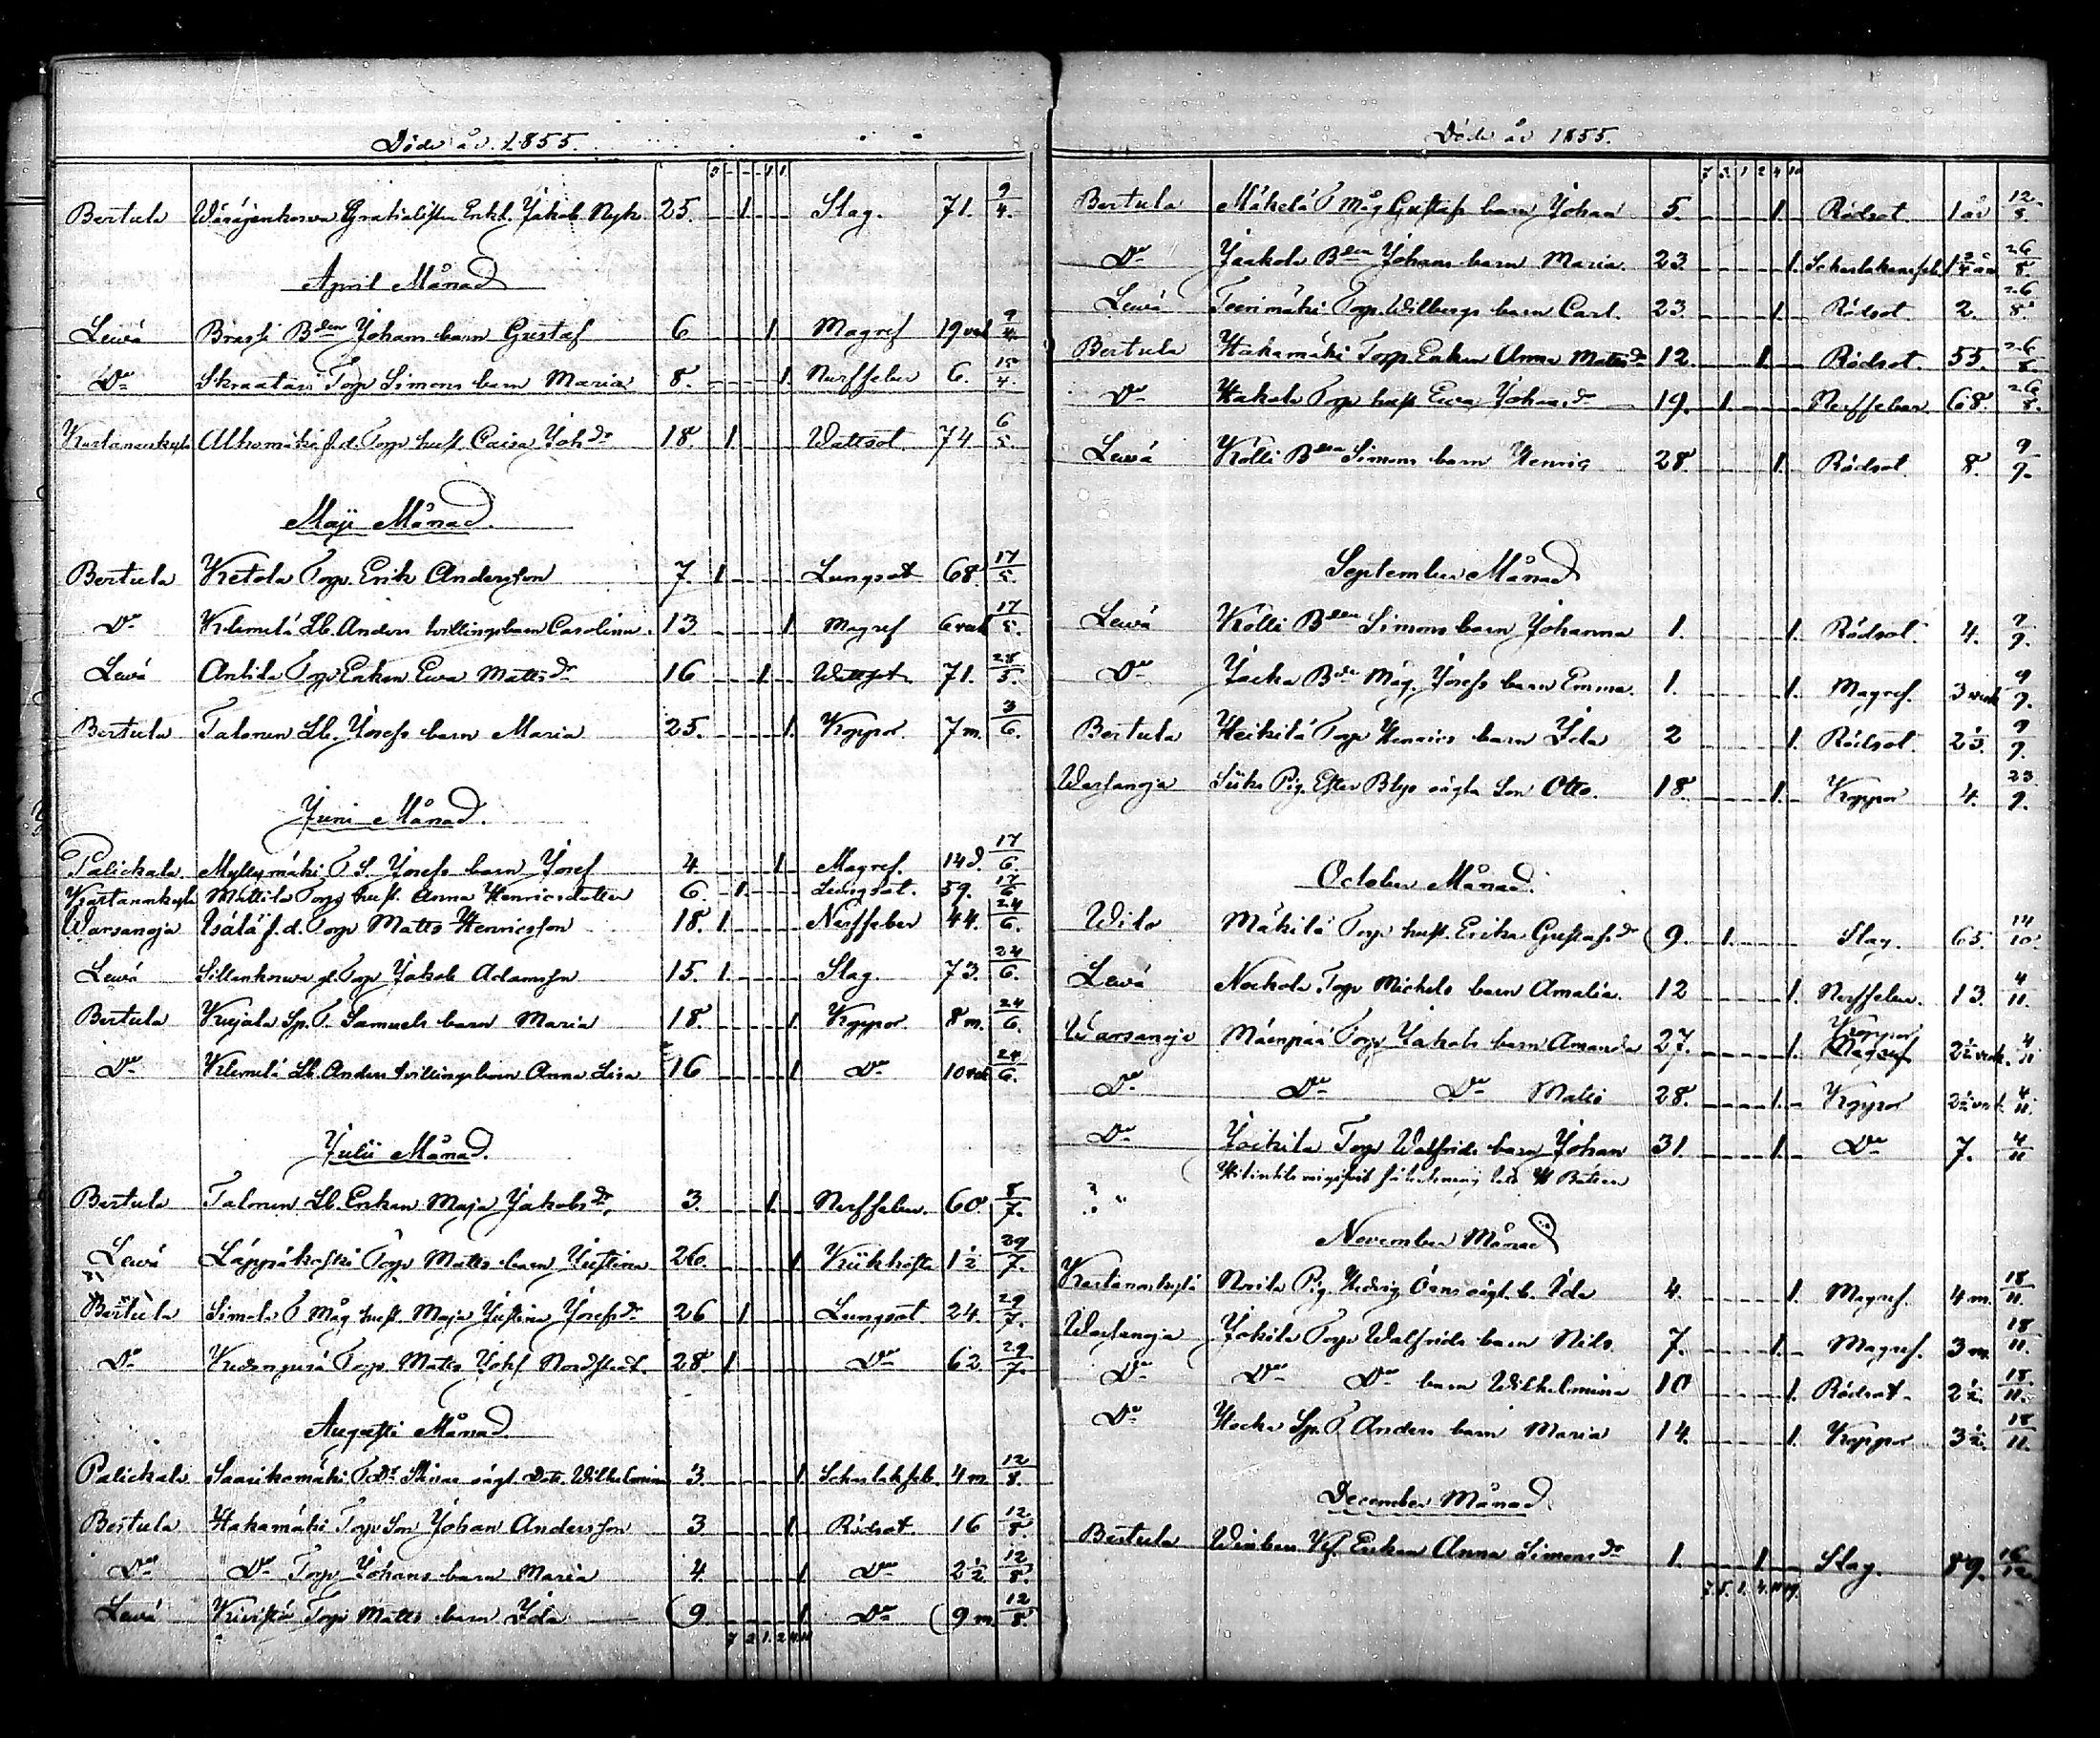 Döde år 1855.
3 - - - 1 1.
Bertula Wäräjenkorva Gratialisten Enkl. Jakob Nyk. 25. 1. Slag. 71. 9/4.
April Månad
Lewä Brask Bden Johans barn Gustaf 6 1. Magref 19 vek 9/4.
Do Skraatari Torp Simons barn Maria 8. 1. Nerffeber 6. 15/4.
Kartanonkylä Alhomäki f.d. Torp hust. Caisa Johdr 18. 1. Wattsot 74 6/5.
Maji Månad.
Bertula Ketola Torp. Erik Andersson 7. 1. Lungsot 68. 17/5.
Do Klemelä Lb. Anders tvillingsbarn Carolina. 13. 1. Magref 6 vek 17/5.
Lewä Antila Torp Enkan Ewa Mattsdr 16 1. Wattsot 71. 28/5.
Bertula Talonen Lb. Josefs barn Maria 25. 1. Koppor 7 m. 3/6.
Juni Månad.
Palickala Myllymäki T S. Josefs barn Josef 4. 1. Magref. 14 d. 17/6.
Kartanonkylä Mattila Torp hust. Anna Henricsdotter 6. 1. Lungsot. 59. 17/6
Warsanoja Isälä f.d. Torp Matts Henricsson 18. 1. Nerffeber 44. 24/6.
Lewä Sillenkorva f. Torp Jakob Adamsson 15. 1. Slag 73. 24/6.
Bertula Kujala Sp. T. Samuels barn Maria 18. 1. Koppor 8 m. 24/6.
Do Klemelä Lb. Anders tvillingsbarn Anna Lisa 16 1. Do 10 vek 24/6.
Julii Månad.
Bertula Talonen Lb. Enkan Maja Jakobsdr. 3. 1. Nerffeber. 60. 8/7.
Lewä Läppäkoski Torp Matts barn Justina 26. 1. Kikhosta 1½ 29/7.
Bertula Simola T Måg hust. Maja Justina Josefsdr 26 1. Lungsot 24. 29/7.
Do Torp. Matts Johs Nordstedt. 28. 1. Do 62. 29/7.
Augusti Månad.
Palickala Saarikomäki T Dr oägt. Dotr. Wilhelmina 3. 1. Scharlakfeb. 4 m. 12/8.
Bertula Hakamäki Torp Son Johan Andersson 3 1. Rödsot. 16 12/8.
Do Do Torp Johans barn Maria 4. 1. Do 2½ 12/8.
Lewä Kivistö Torp Matts barn Ida (9 1. Do (9 m. 12/8.
7 2. 1. 2 4 11
Döde år 1855.
7 3. 1 2 4 10
Bertula Mäkelä T Måg Gustafs barn Johan 5. 1. Rödsot. 1 år 12/8.
Do Jaakola Bden Johans barn Maria. 23. 1. Scharlakansfeb. 1¾ år 26/8.
Lewä Teerimäki Torp. Wilbergs barn Carl. 23. 1. Rödsot. 2. 26/8.
Bertula Hakamäki Torp. Enkan Anna Mattsdr 12. 1. Rödsot. 55. 26/8.
Do Hakola Torp hust Ewa Johansdr 19. 1. Nerffeber 68. 26/8.
Lewä Kölli Bden Simons barn Henric 28. 1. Rödsot. 8. 9/9.
September Månad
Lewä Kölli Bden Simons barn Johanna 1. 1. Rödsot 4. 9/9.
Do Jacka Bde Måg. Josefs barn Emma. 1. 1. Magref. 3 vek 9/9.
Bertula Heikilä Torp Henrics barn Ida 2 1. Rödsot 2⅓. 9/9.
Warsanoja Pig. Ester Blys oägta Son Otto. 18. 1. Koppor 4. 23/9.
October Månad.
Wilo Mäkilä Torp hust. Erika Gustafsdr (9. 1. Slag. 65. 14/10
Lewä Nockola Torp Michels barn Amalia. 12 1. Nerffeber. 13. 4/11.
Warsanoja Mäenpää Torp Jakobs barn Amanda 27. 1. Koppor 2½ vek. 4/11
Do Do Do Matts 28. 1. Koppor 2½ vek. 4/11.
Do Jockila Torp Walfrids barn Johan 31. 1. Do 7. 4/11
November Månad
Kartanonkylä Norila Pig. Hedvig oägt. b. Ida 4. 1. Magref. 4 m. 18/11.
Warsanoja Jokila Torp Walfrids barn Nils. 7. 1. Magref. 3 m. 18/11.
Do Do Do barn Wilhelmina 10 1. Rödsot. 2½. 18/11.
Do Hocka Sp. T Anders barn Maria 14. 1. Koppor 3½. 18/11.
December Månad.
Bertula Enkan Anna Simonsdr 1. 1. Slag. 89. 16/12.
7. 5. 1. 4. 11 19.